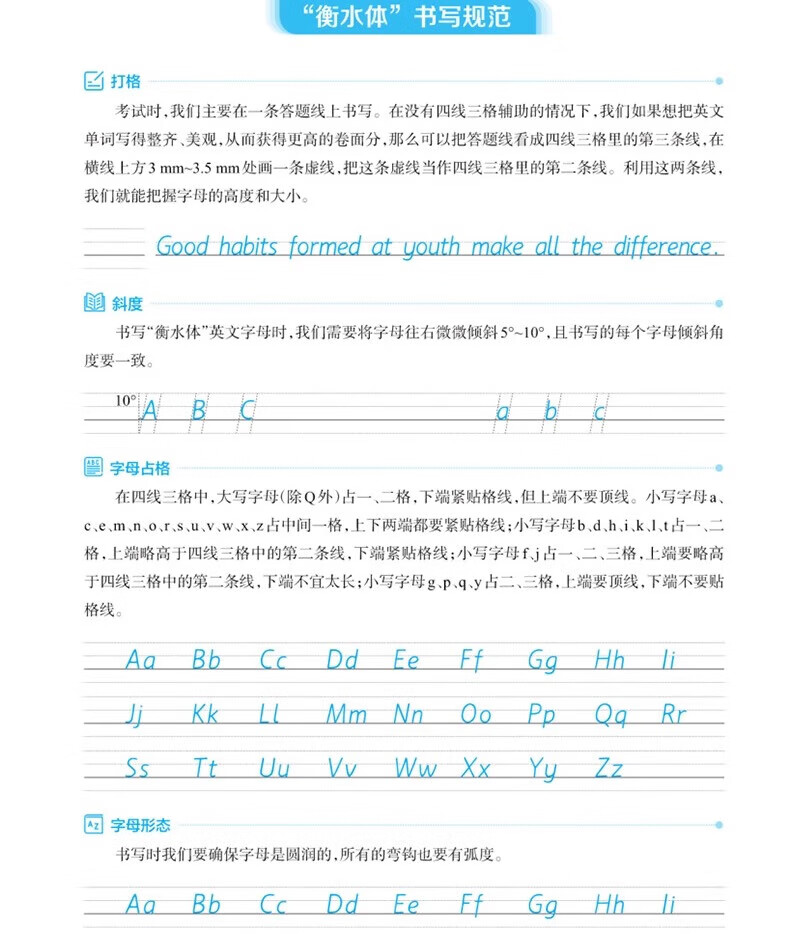 “衡水体”书写规范
打格
考试时,我们主要在一条答题线上书写。在没有四线三格辅助的情况下,我们如果想把英文
单词写得整齐、美观,从而获得更高的卷面分,那么可以把答题线看成四线三格里的第三条线,在
横线上方3 mm~3.5 mm处画一条虚线,把这条虚线当作四线三格里的第二条线。利用这两条线,
我们就能把握字母的高度和大小。
Good habits formed at youth make all the difference.
斜度
书写“衡水体”英文字母时,我们需要将字母往右微微倾斜5°~10°,且书写的每个字母倾斜角
度要一致。
10° A B C a b c
字母占格
在四线三格中,大写字母(除Q外)占一、二格,下端紧贴格线,但上端不要顶线。小写字母a、
c、e、m、n、o、r、s、u、v、w、x、z占中间一格,上下两端都要紧贴格线;小写字母b、d、h、i、k、l、t占一、二
格,上端略高于四线三格中的第二条线,下端紧贴格线;小写字母f、j占一、二、三格,上端要略高
于四线三格中的第二条线,下端不宜太长;小写字母g、p、q、y占二、三格,上端要顶线,下端不要贴
格线。
Aa Bb Cc Dd Ee Ff Gg Hh Ii
Jj Kk Ll Mm Nn Oo Pp Qq Rr
Ss Tt Uu Vv Ww Xx Yy Zz
字母形态
书写时我们要确保字母是圆润的,所有的弯钩也要有弧度。
Aa Bb Cc Dd Ee Ff Gg Hh Ii